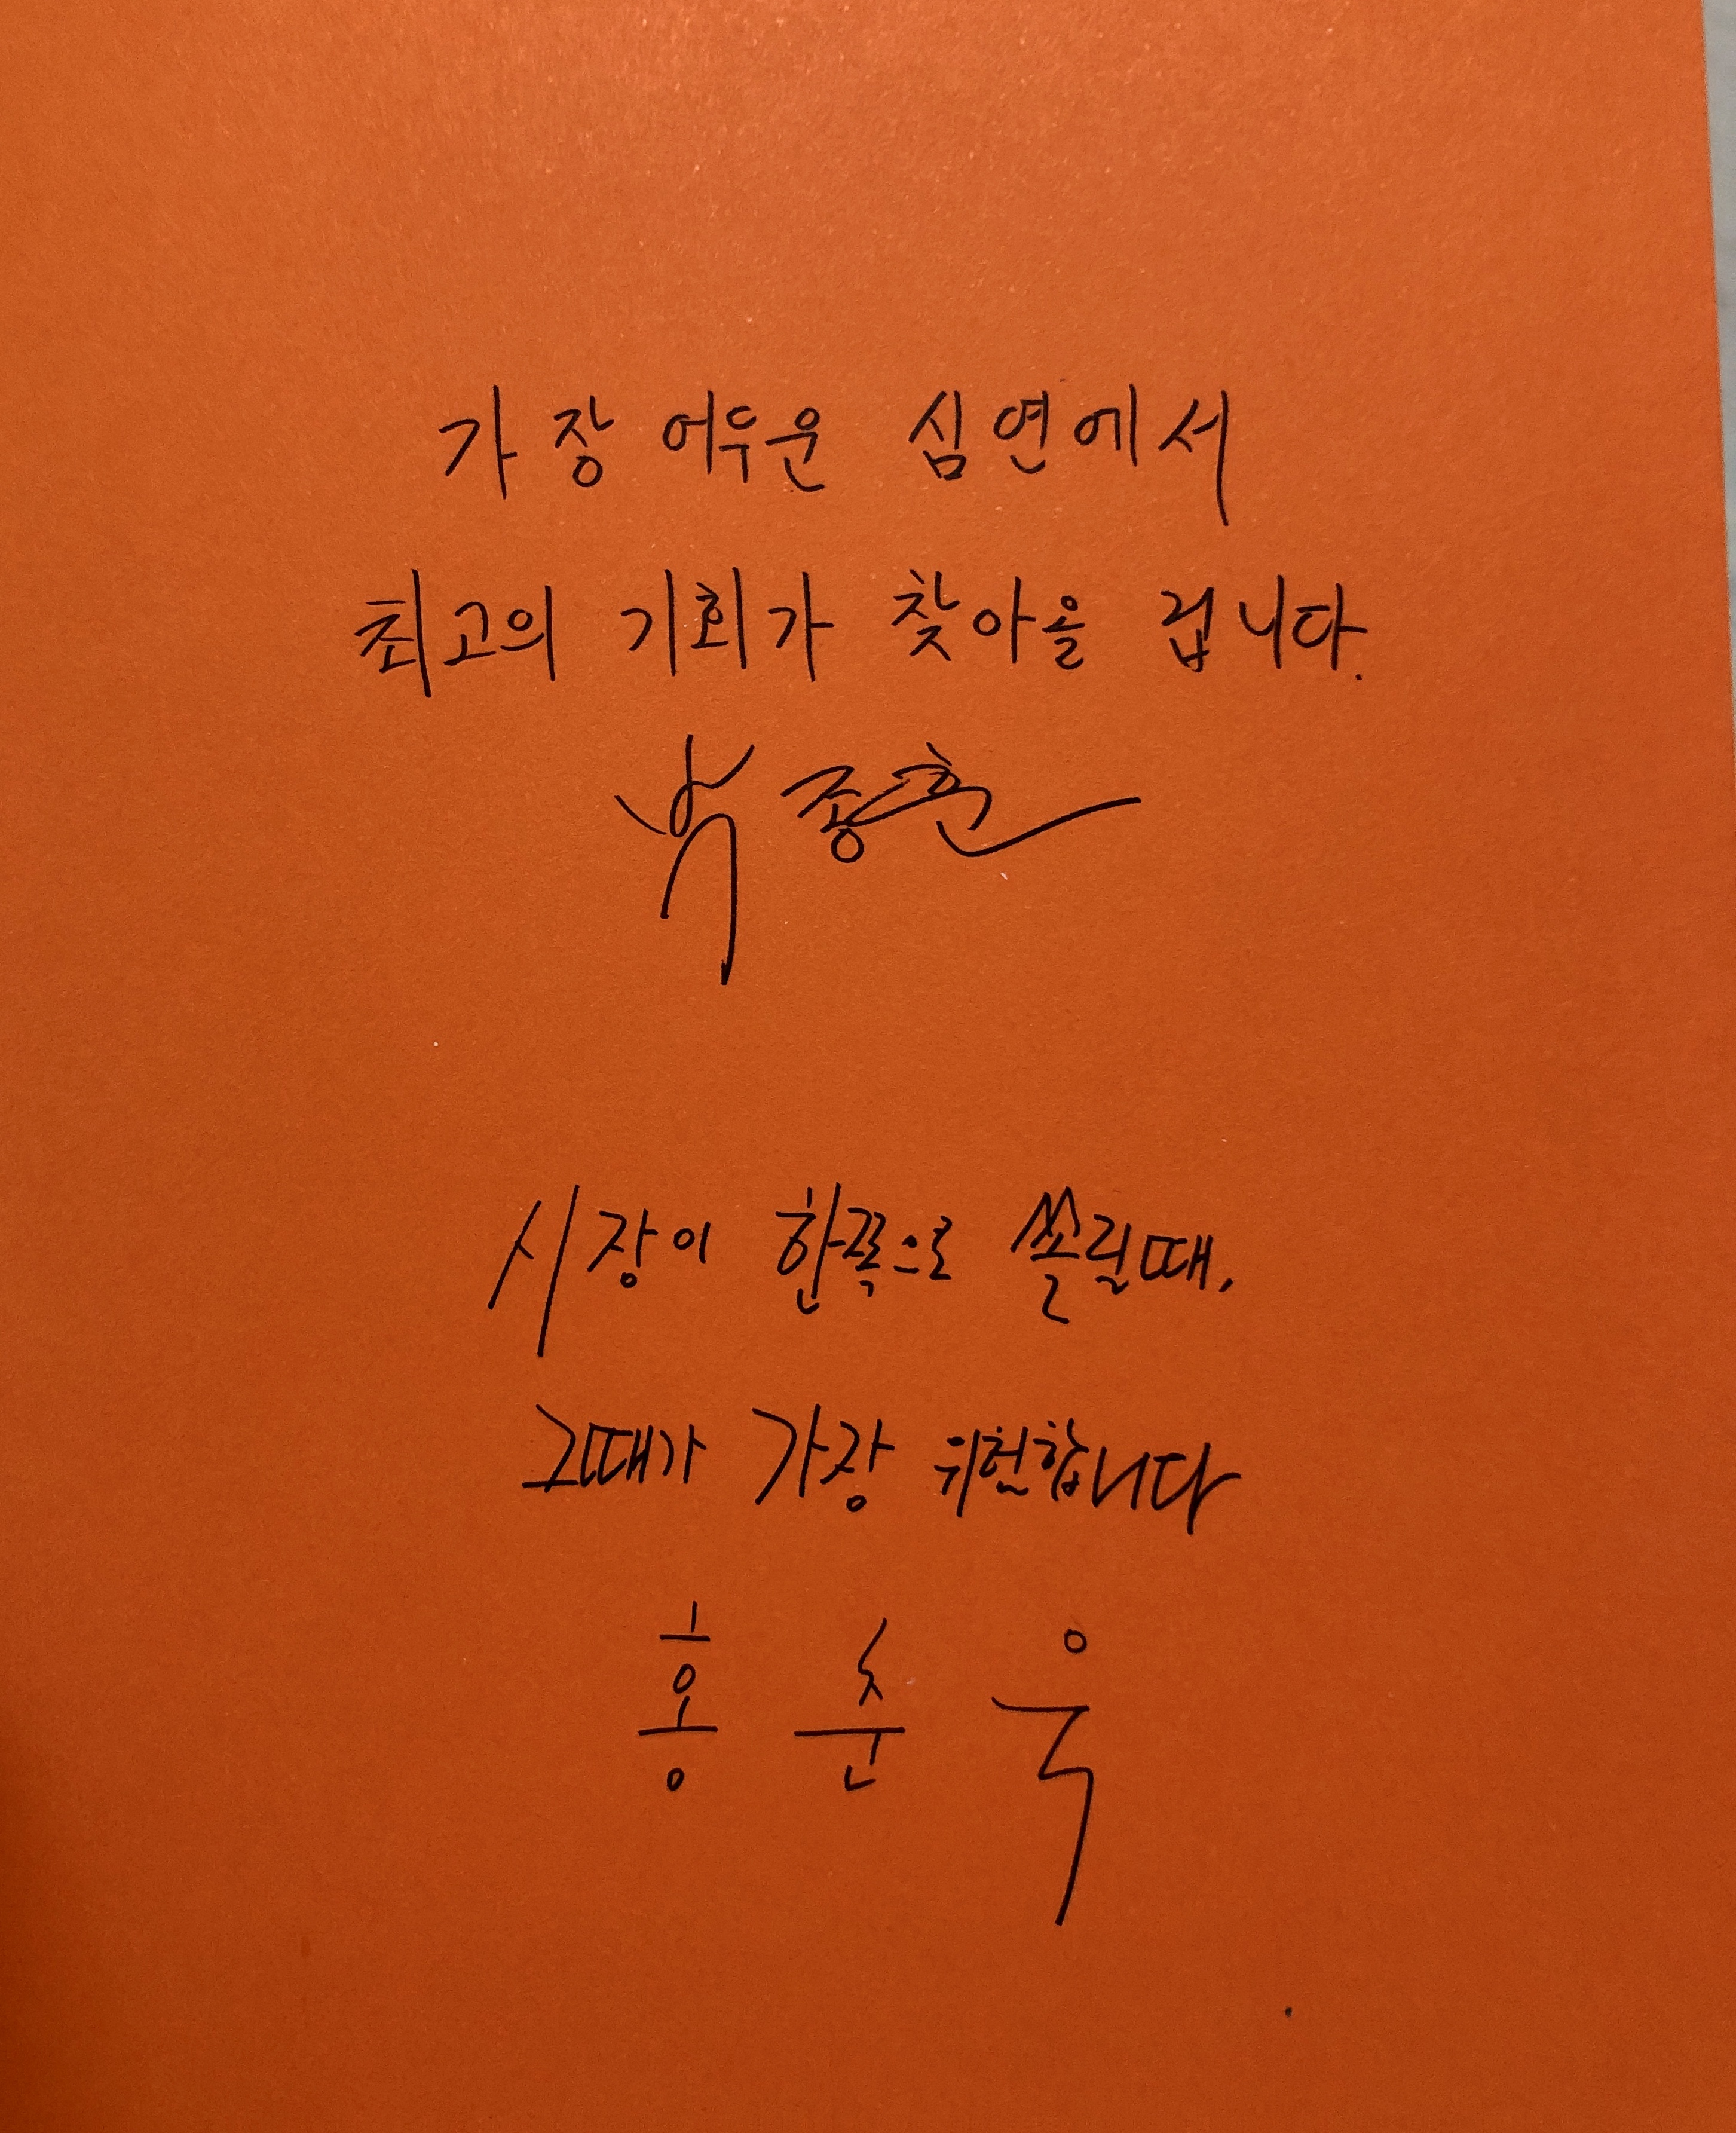 가장 어두운 심연에서
최고의 기회가 찾아올 겁니다.
박종훈
시장이 한쪽으로 쏠릴때,
그때가 가장 위험합니다
홍춘욱